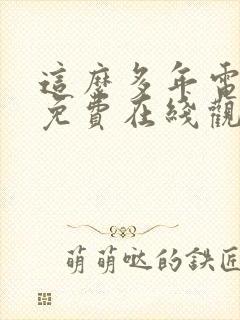 這麼多年電
免費在綫觀
萌萌噠的鉄匠